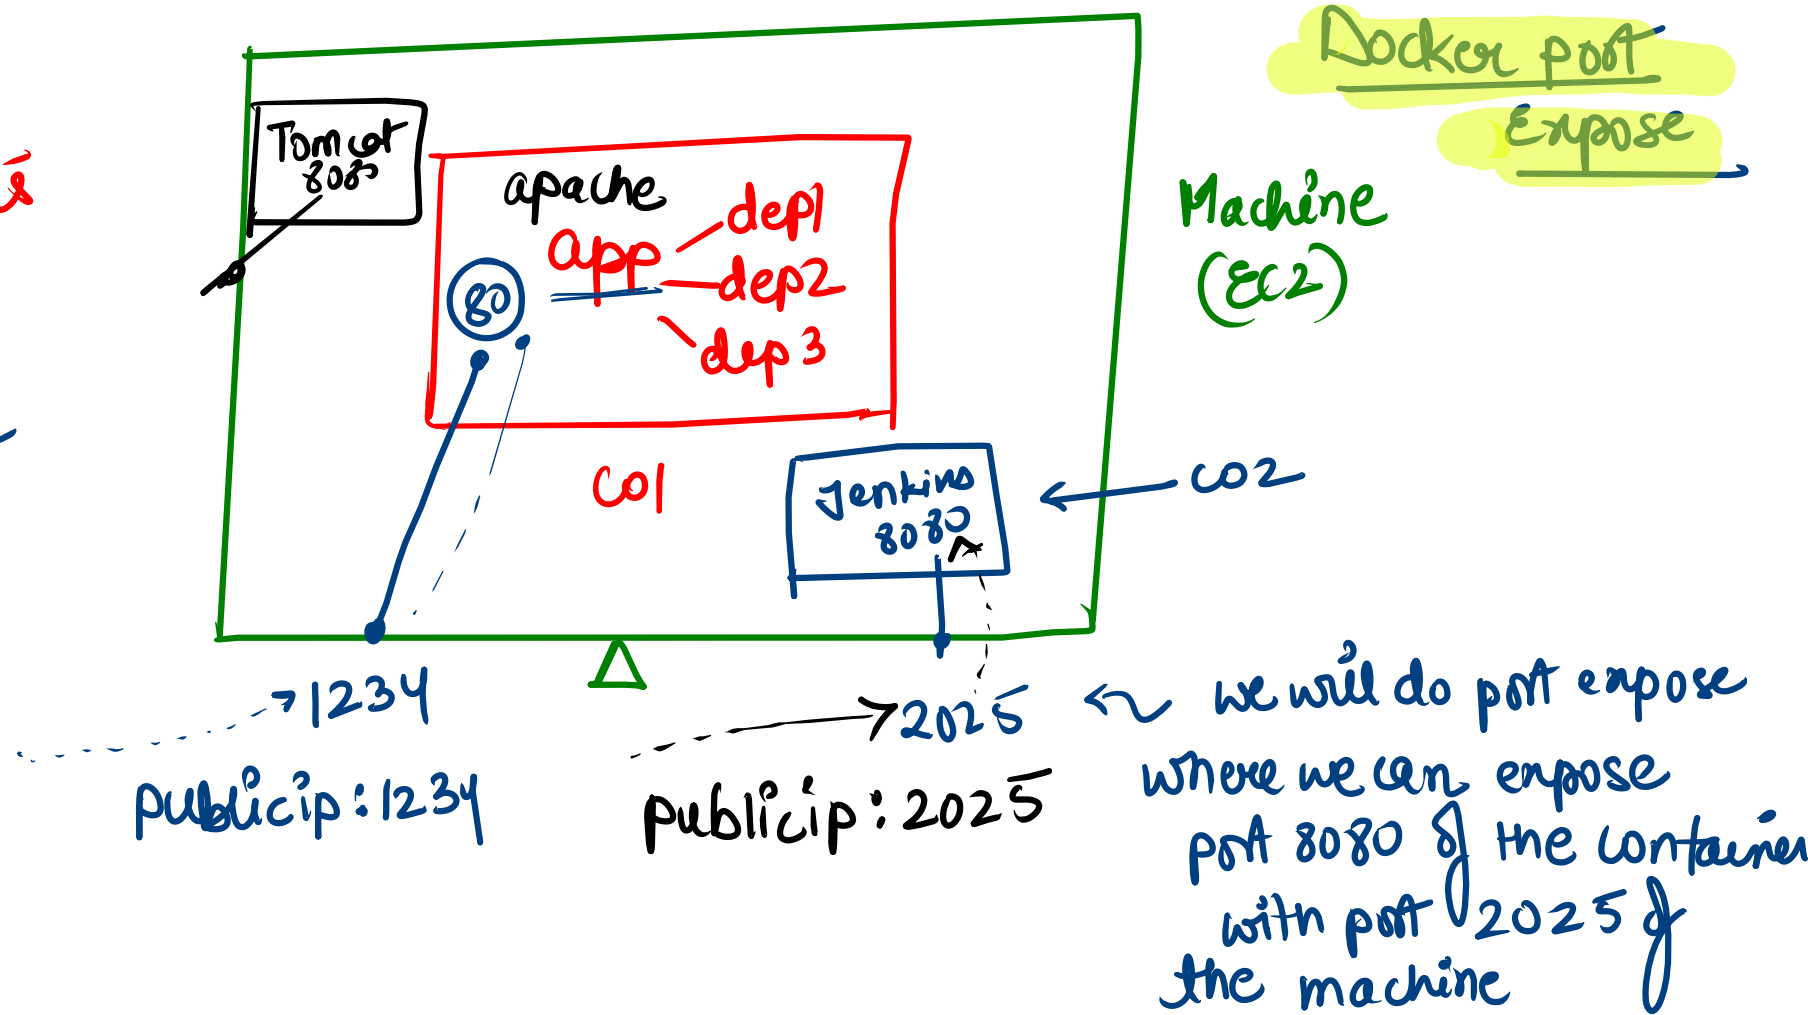 Docker port
Expose
Tomcat
8080
apache
app
dep1
dep2
dep3
80
Machine
(EC2)
C01
Jenkins
8080
C02
1234
publicip:1234
2025
publicip:2025
we will do port expose
where we can expose
port 8080 of the container
with port 2025 of
the machine